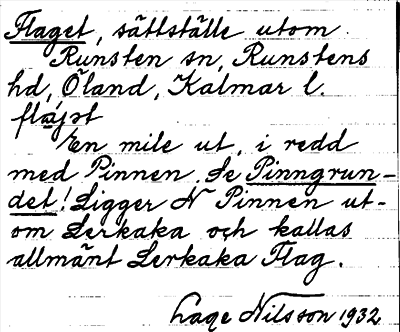 Flaget, sättställe utom
Runsten sn, Runstens
hd, Öland, Kalmar l.
flájət
En mile ut, i redd
med Pinnen. Se Pinngrun-
det! Ligger N Pinnen ut-
om Lerkaka och kallas
allmänt Lerkaka Flag.
Lage Nilsson 1932